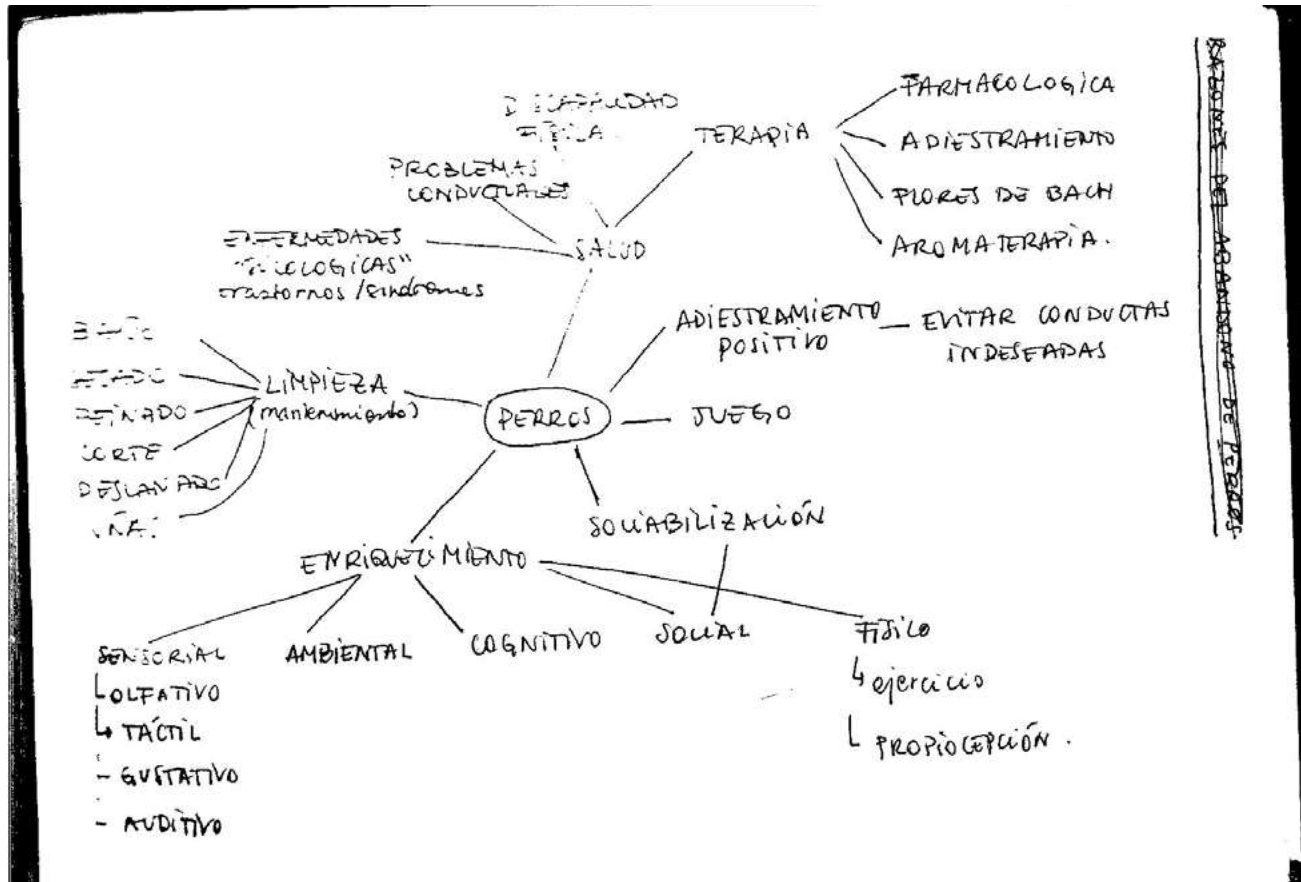 DISCAPACIDAD
FÍSICA
PROBLEMAS
CONDUCTUALES
ENFERMEDADES
"PSICOLOGICAS"
trastornos / síndromes
SALUD
TERAPIA
FARMACOLOGICA
ADIESTRAMIENTO
FLORES DE BACH
AROMATERAPIA.
ADIESTRAMIENTO
POSITIVO
EVITAR CONDUCTAS
INDESEADAS
BAÑO
PEINADO
CORTE
DESLANADO
LIMPIEZA
(mantenimiento)
PERROS
JUEGO
SOCIABILIZACIÓN
ENRIQUECIMIENTO
SENSORIAL
OLFATIVO
TÁCTIL
- GUSTATIVO
- AUDITIVO
AMBIENTAL
COGNITIVO
SOCIAL
FÍSICO
ejercicio
PROPIOCEPCIÓN.
RAZONES DEL ABANDONO DE PERROS